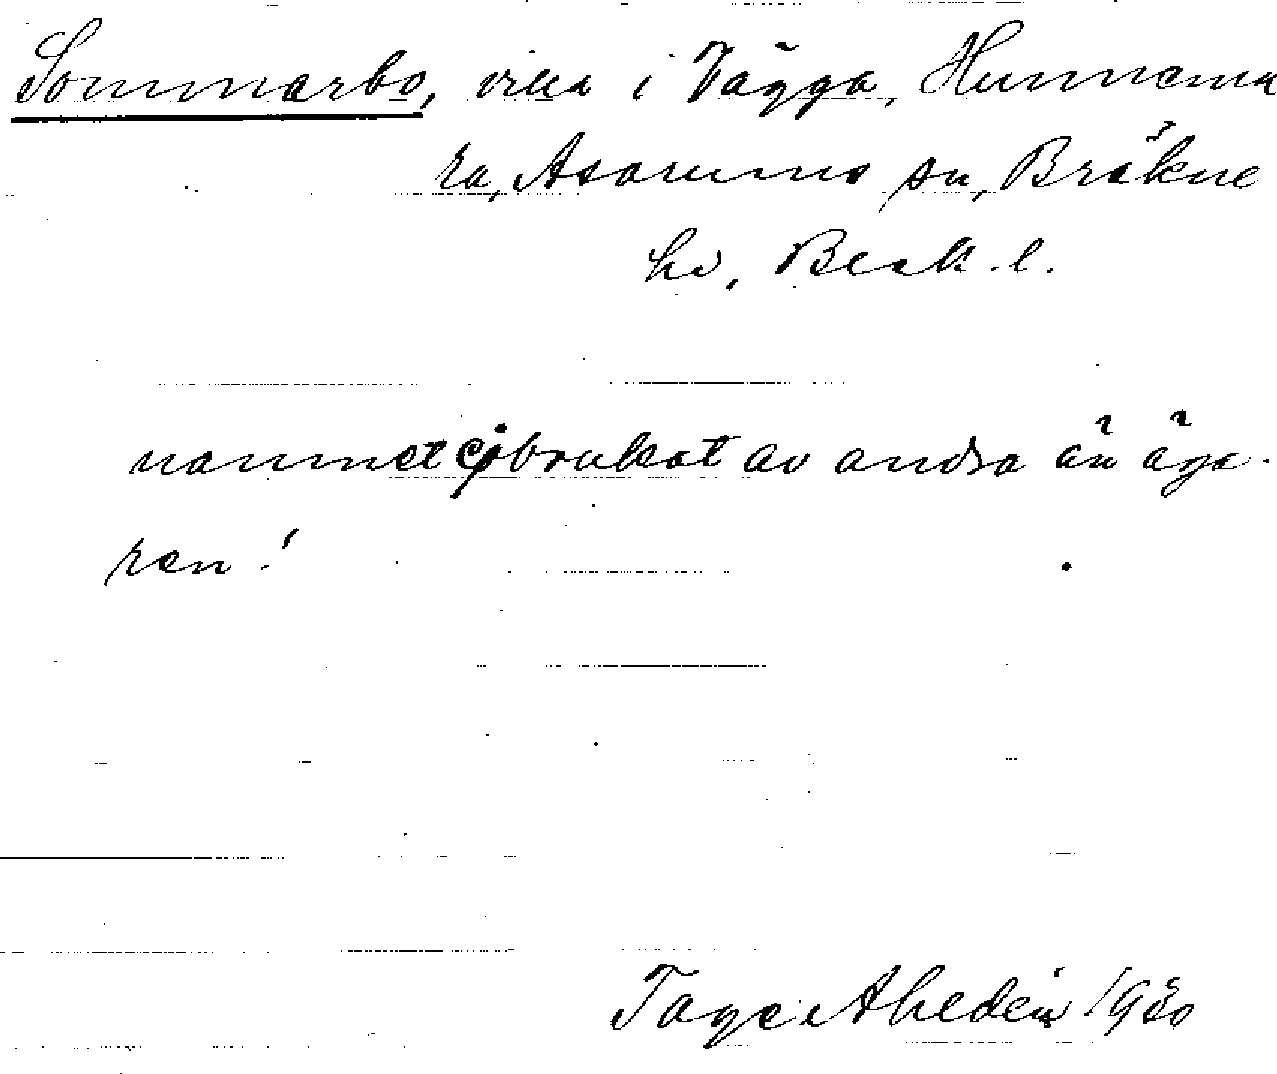 Sommarbo, villa i Vägga, Hunnema
ra, Asarums sn, Bräkne
hd, Blek. l.
namnet ej brukat av andra än äga-
ren!
Tage Ahedén 1930